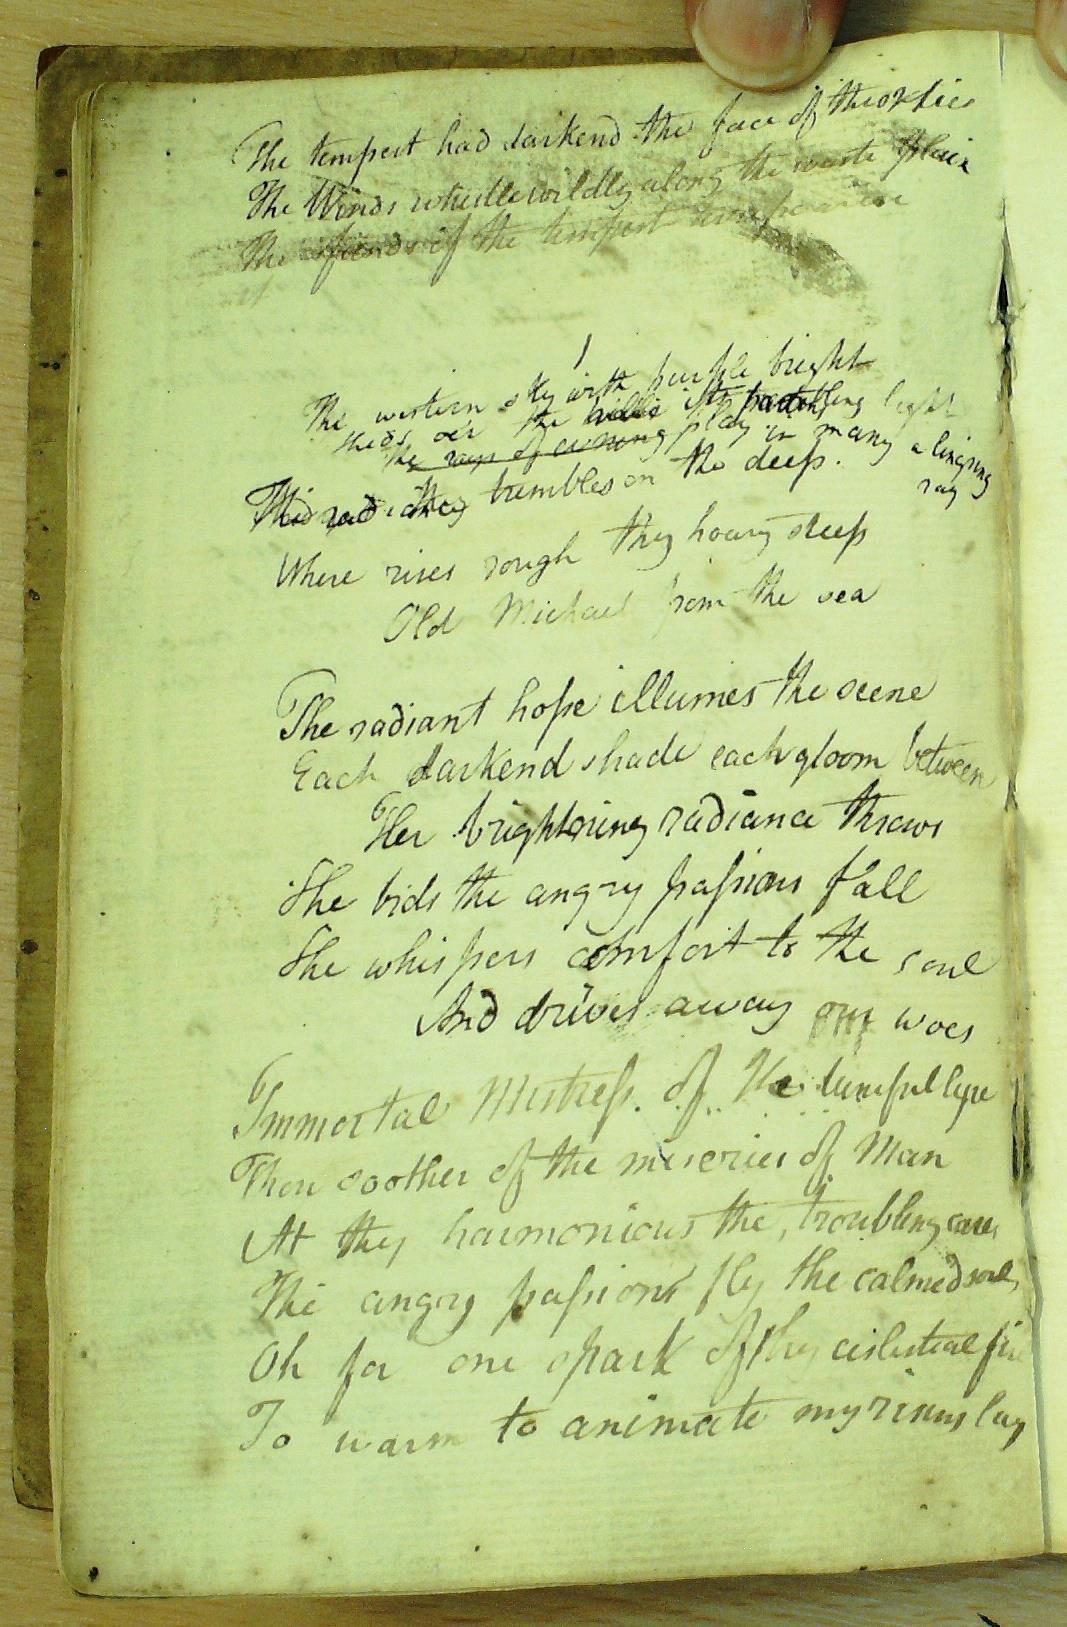 The tempest had darkend the face of the skies
The Winds whistle wildly along the waste plain
The fiends of the tempest
The western sky with purple bright
Sheds oer the hills its light
The rays of evening play in many a lingring
ray
trembles on the deep.
Where rises rough thy hoary steep
Old Michael from the sea
The radiant hope illumes the scene
Each darkend shade each gloom between
Her brightning radiance throws
She bids the angry passions fall
She whispers comfort to the soul
And drives away our woes
Immortal Mistress. of the tuneful lyre
Thou soother of the miseries of Man
At thy harmonious the, troubling cares
The angry passions fly the calmed soul,
Oh for one spark of thy celestial fire
To warm to animate my rising lay